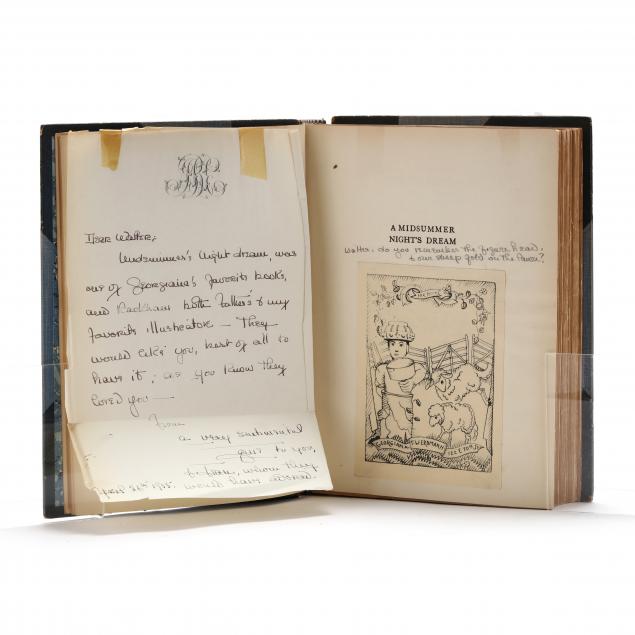 Dear Walter,
Midsummer's Night dream, was
one of Georgiain's favorite books,
and Rackham both Father's & my
favorite illustrator — They
would like you, best of all to
have it; as you know they
loved you —
from
a very sentimental
to you,
whom they
would have
A MIDSUMMER
NIGHT'S DREAM
Walter. do you remember the figure head.
& our sheep fold on the